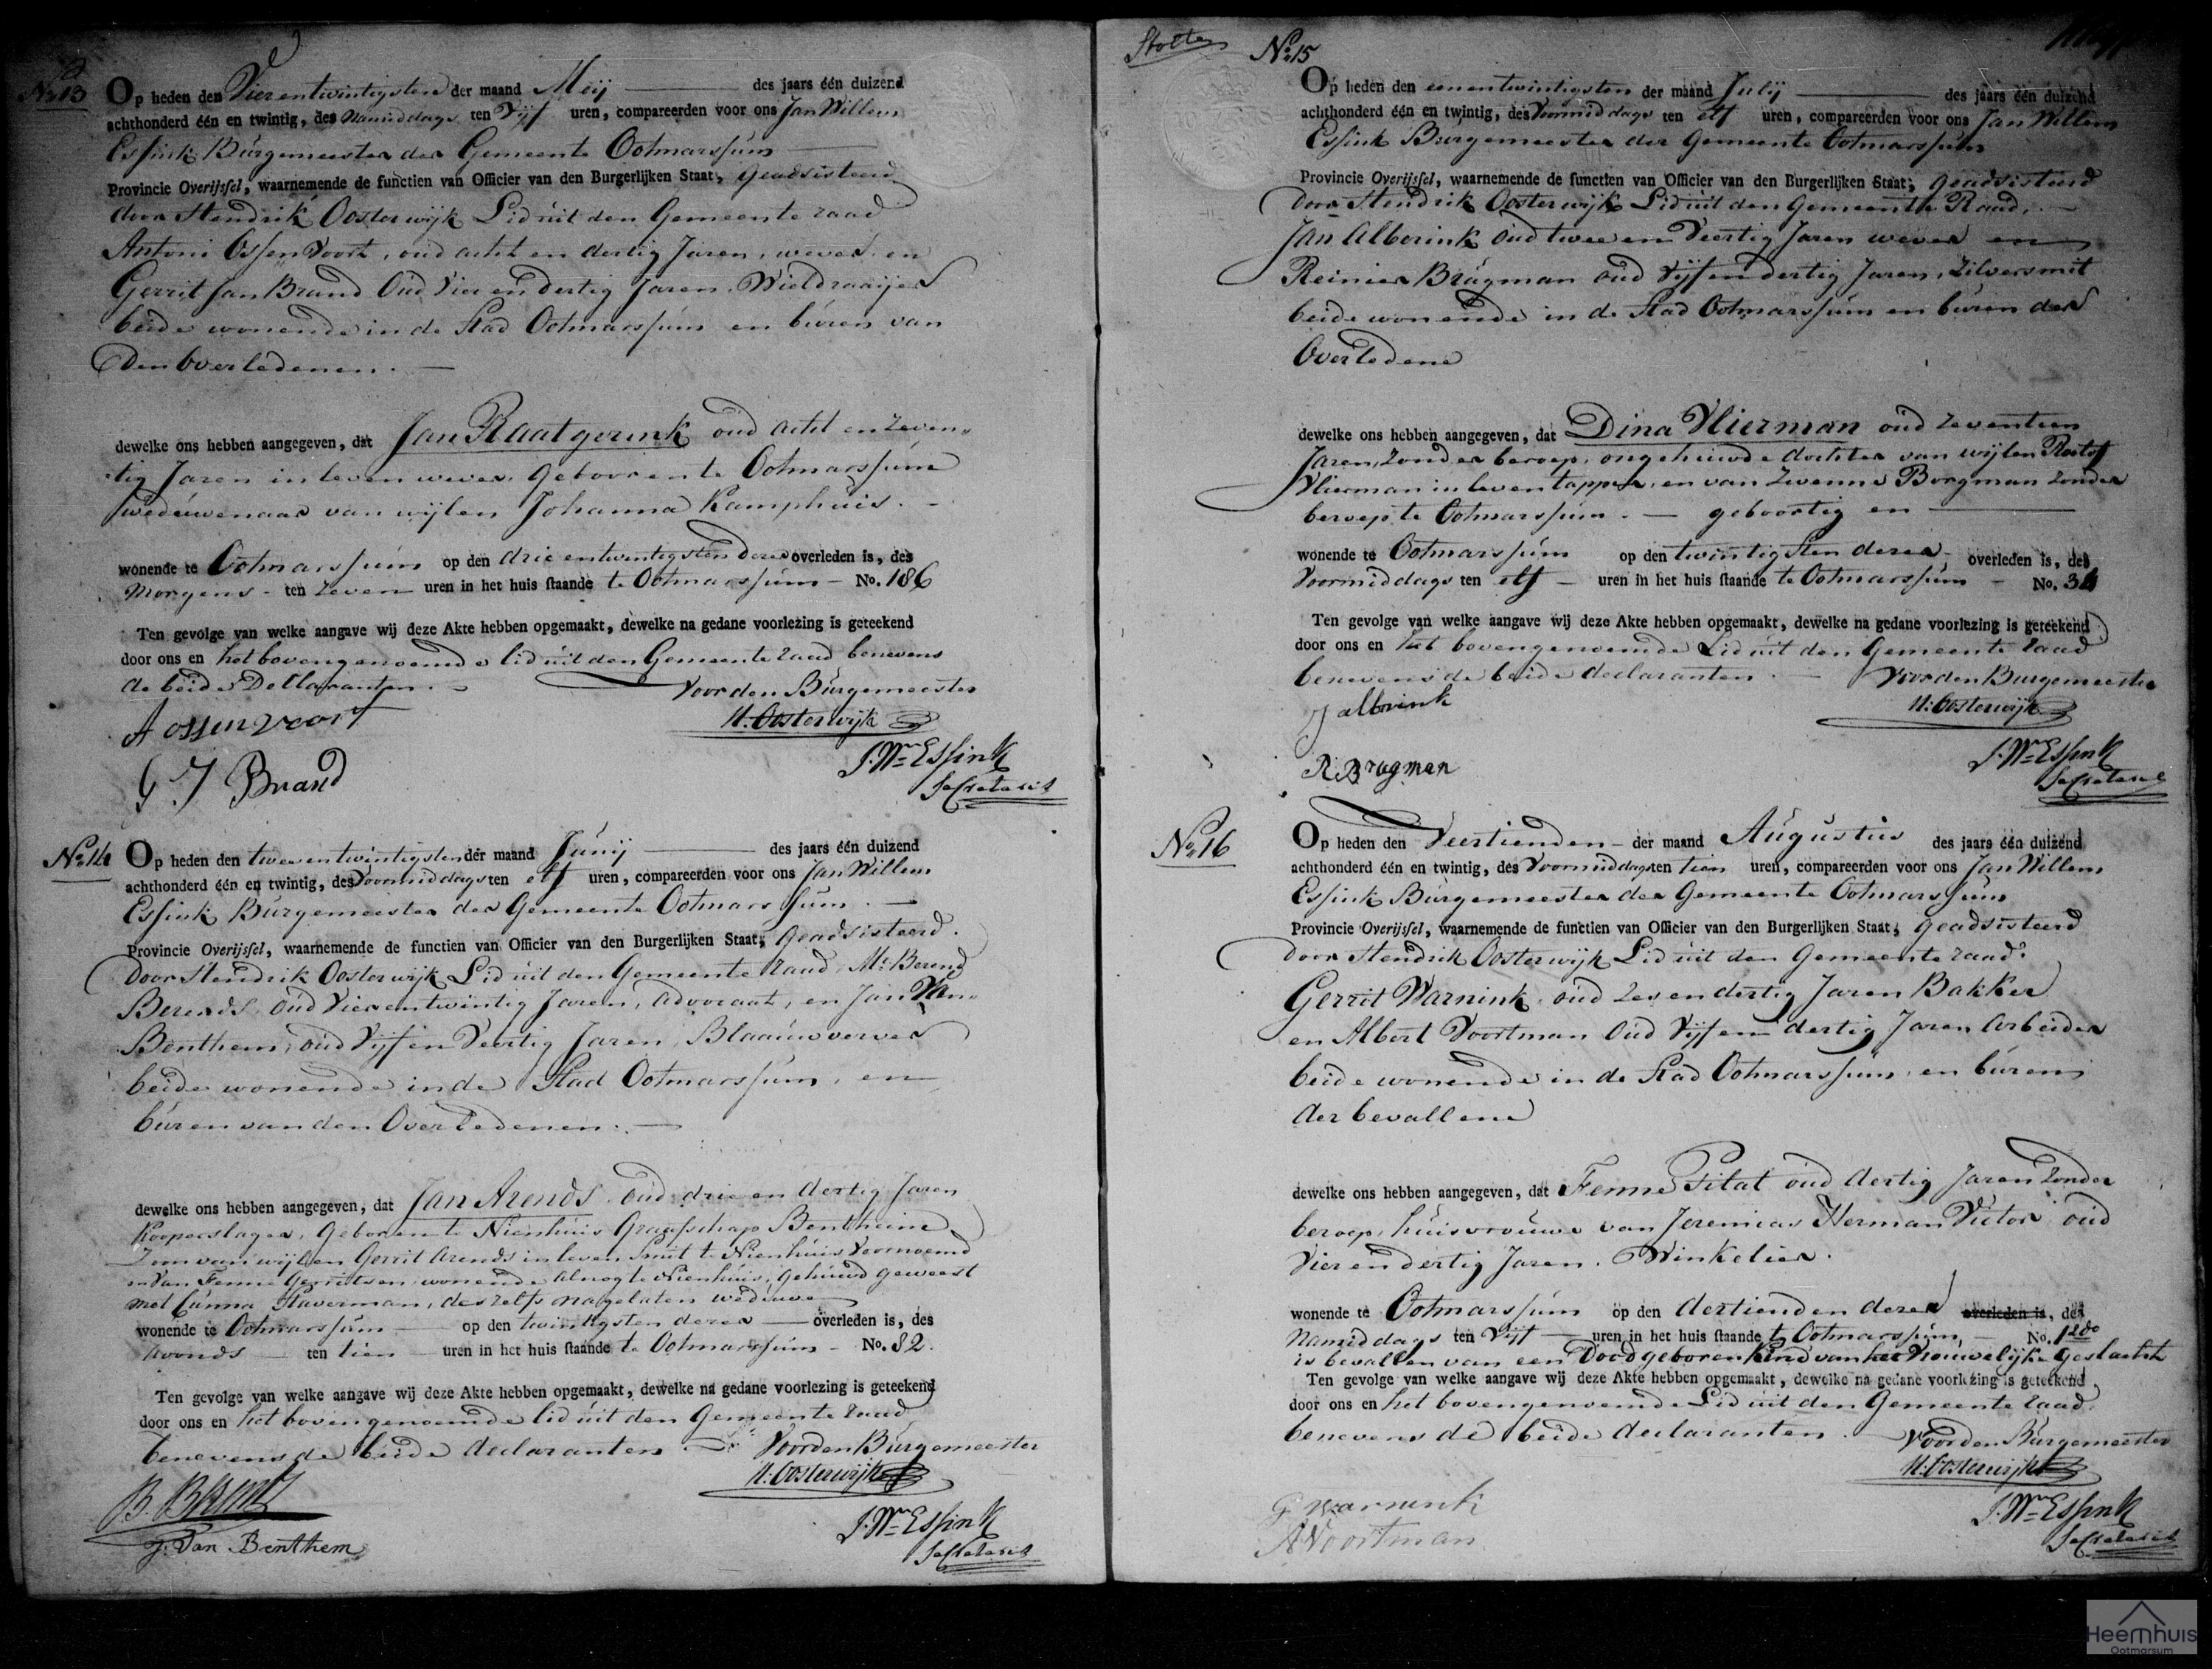 No 13
Op heden den Vierentwintigsten der maand Meij des jaars één duizend
achthonderd één en twintig, des Namiddags ten Vijf uren, compareerden voor ons Jan Willem
Essink Burgemeester der Gemeente Ootmarssum
Provincie Overijssel, waarnemende de functien van Officier van den Burgerlijken Staat, geadsisteerd
door Hendrik Oosterwijk Lid uit den Gemeente raad
Antoni Ossenvoort, oud acht en dertig Jaren, wever en
Gerrit Jan Brand Oud Vier en dertig Jaren Wieldraaijer
beide wonende in de Stad Ootmarssum en buren van
den Overledenen.
dewelke ons hebben aangegeven, dat Jan Raatgerink oud acht en zeven=
tig Jaren in leven wever, geboren te Ootmarssum
weduwenaar van wijlen Johanna Kamphuis.
wonende te Ootmarssum op den drie entwintigsten dezer overleden is, des
Morgens ten Zeven uren in het huis staande te Ootmarssum No. 186
Ten gevolge van welke aangave wij deze Akte hebben opgemaakt, dewelke na gedane voorlezing is geteekend
door ons en het bovengenoemde lid uit den Gemeente raad benevens
de beide Declaranten.
Voor den Burgemeester
H. Oosterwijk
A ossenvoort
J. Wm Essink
Secretaris
G J Brand
No 14
Op heden den tweeentwintigsten der maand Junij des jaars één duizend
achthonderd één en twintig, des Voormiddags ten elf uren, compareerden voor ons Jan Willem
Essink Burgemeester der Gemeente Ootmarssum
Provincie Overijssel, waarnemende de functien van Officier van den Burgerlijken Staat, geadsisteerd
door Hendrik Oosterwijk Lid uit den Gemeente raad Mr Berend
Berends, oud Vierentwintig Jaren, advocaat, en Jan Van=
Benthem, oud Vijf en Veertig Jaren, Blaauwverver
beide wonende in de Stad Ootmarssum, en
buren van den Overledenen.
dewelke ons hebben aangegeven, dat Jan Arends oud drie en dertig Jaren
Kooperslager, Geboren te Nienhuis Graafschap Bentheim
Zoon van wijlen Gerrit Arends in leven Smit te Nienhuis Voornoemd
en van Fenne Gerritsen, wonende alnog te Nienhuis, gehuwd geweest
met Staverman, deszelfs nagelaten weduwe
wonende te Ootmarssum op den twintigsten dezer overleden is, des
avonds ten tien uren in het huis staande te Ootmarssum No. 82.
Ten gevolge van welke aangave wij deze Akte hebben opgemaakt, dewelke na gedane voorlezing is geteekend
door ons en het bovengenoemde lid uit den Gemeente raad
benevens de beide declaranten
Voor den Burgemeester
H. Oosterwijk
J. Wm Essink
Secretaris
J. Van Benthem
Stolte
No 15
Op heden den eenentwintigsten der maand Julij des jaars één duizend
achthonderd één en twintig, des Voormiddags ten elf uren, compareerden voor ons Jan Willem
Essink Burgemeester der Gemeente Ootmarssum
Provincie Overijssel, waarnemende de functien van Officier van den Burgerlijken Staat, geadsisteerd
door Hendrik Oosterwijk Lid uit den Gemeente Raad,
Jan Alberink Oud twee en Veertig Jaren wever en
Reinier Brugman oud Vijf en dertig Jaren, Zilversmit
beide wonende in de Stad Ootmarssum en buren der
Overledene
dewelke ons hebben aangegeven, dat Dina Vlierman oud zeventien
Jaren, Zonder beroep, ongehuwde dochter van wijlen Roelof
Vlierman in leven tapper, en van Zwenne Borgman zonder
beroep te Ootmarssum. geboortig en
wonende te Ootmarssum op den twintigsten dezer overleden is, des
Voormiddags ten elf uren in het huis staande te Ootmarssum No. 34
Ten gevolge van welke aangave wij deze Akte hebben opgemaakt, dewelke na gedane voorlezing is geteekend
door ons en het bovengenoemde Lid uit den Gemeente raad
benevens de beide declaranten
Voor den Burgemeester
J alberink
H. Oosterwijk
J. Wm Essink
Secretaris
R. Brugman
No 16
Op heden den Veertienden der maand Augustus des jaars één duizend
achthonderd één en twintig, des Voormiddags ten tien uren, compareerden voor ons Jan Willem
Essink Burgemeester der Gemeente Ootmarssum
Provincie Overijssel, waarnemende de functien van Officier van den Burgerlijken Staat, geadsisteerd
door Hendrik Oosterwijk Lid uit den Gemeente raad.
Gerrit Warnink oud zes en dertig Jaren Bakker
en Albert Voortman Oud Vijf en dertig Jaren Arbeider
beide wonende in de Stad Ootmarssum en buren
der bevallene
dewelke ons hebben aangegeven, dat Fenne Pilat oud dertig Jaren Zonder
beroep, huisvrouwe van Jeremias Herman Victor oud
Vier en dertig Jaren. Winkelier.
wonende te Ootmarssum op den dertienden dezer overleden is, des
Namiddags ten Vijf uren in het huis staande te Ootmarssum, No.
is bevallen van een Dood geboren Kind van het Vrouwelijke geslacht
Ten gevolge van welke aangave wij deze Akte hebben opgemaakt, dewelke na gedane voorlezing is geteekend
door ons en het bovengenoemde Lid uit den Gemeente raad.
benevens de beide declaranten.
Voor den Burgemeester
H. Oosterwijk
G Warnink
J. Wm Essink
Secretaris
A Voortman
Heemhuis
Ootmarsum